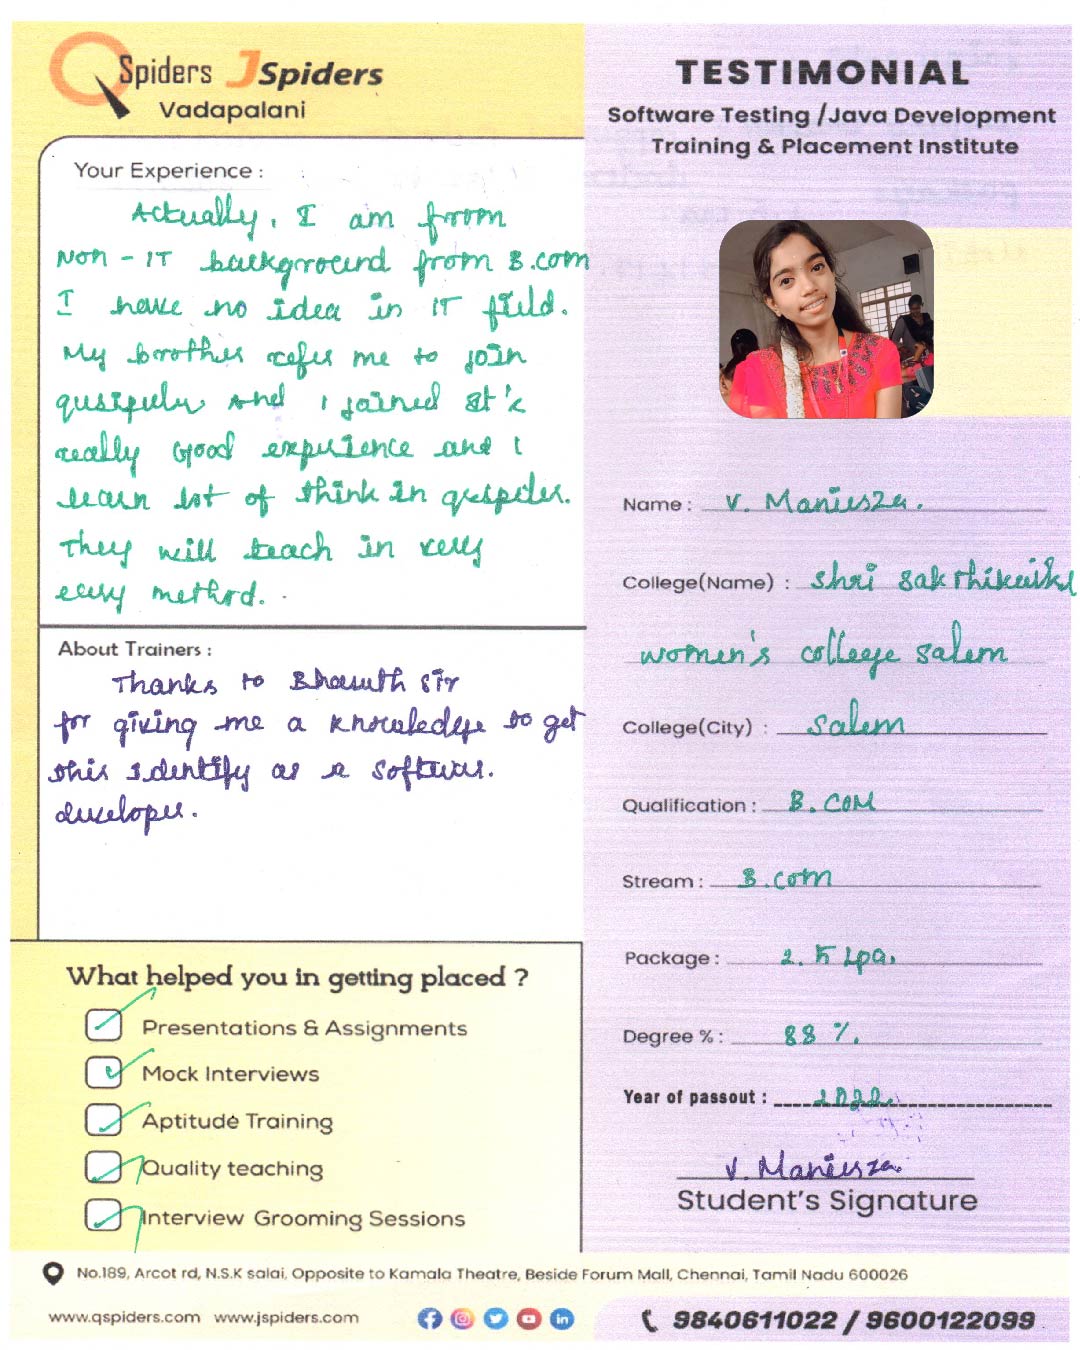 QSpiders JSpiders
Vadapalani
Your Experience :
Actually, I am from
Non - IT background from B.com
I have no idea in IT field.
My brother refer me to join
and I joined it's
really Good experience and I
learn lot of think in qspider.
They will teach in very
easy method.
About Trainers :
Thanks to Bharath sir
for giving me a knowledge to get
this identify as a software.
developer.
What helped you in getting placed ?
Presentations & Assignments
Mock Interviews
Aptitude Training
Quality teaching
Interview Grooming Sessions
TESTIMONIAL
Software Testing /Java Development
Training & Placement Institute
Name : V. Maniesza.
College(Name) : Shri
women's college Salem
College(City) : Salem
Qualification : B.COM
Stream : B.com
Package : 2.5 Lpa.
Degree % : 88 %.
Year of passout : 2022.
V. Maniesza.
Student's Signature
No.189, Arcot rd, N.S.K salai, Opposite to Kamala Theatre, Beside Forum Mall, Chennai, Tamil Nadu 600026
www.qspiders.com www.jspiders.com
9840611022 / 9600122099